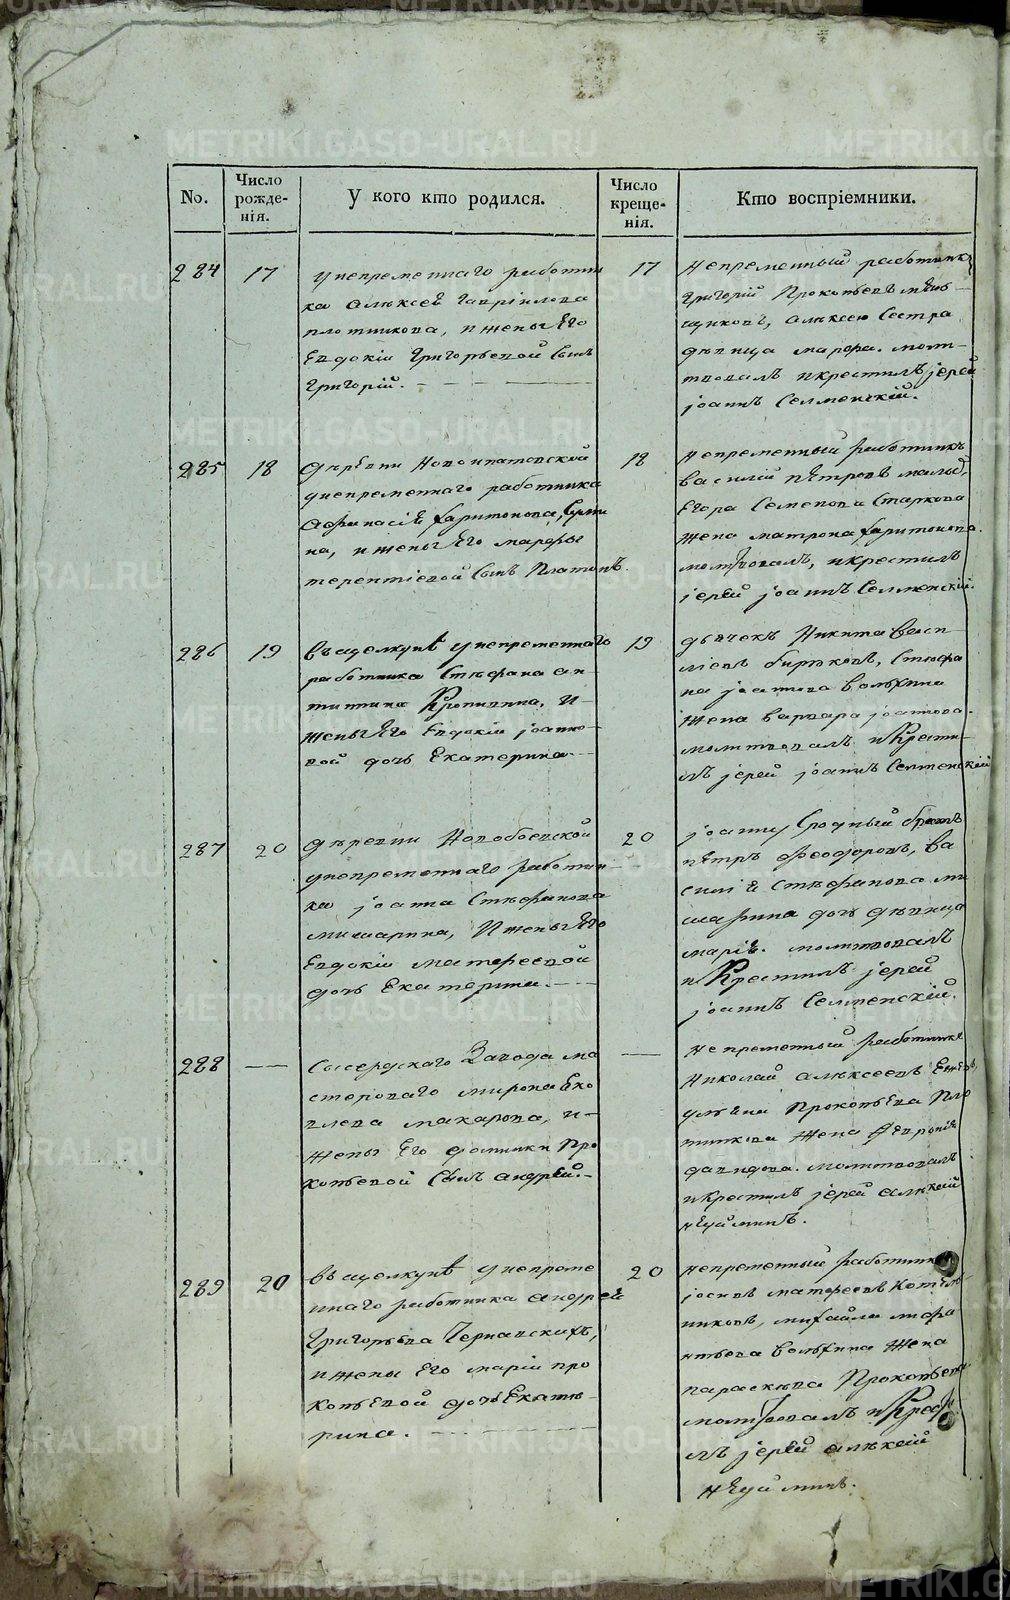 No.
Число рожде-нія.
У кого кто родился.
Число креще-нія.
Кто воспріемники.
284
17
унепременнаго работни
ка Алѣксея Гаврілова
плотникова, и жены Его
Евдокіи Григорьевой Сынъ
Григорій.
17
непременный работникъ
Григорій Прокопьевъ
Алѣксею Сестра
дѣвица марфа. молит-
твовалъ и крестилъ јерей
јоаннъ Селменскій.
285
18
дѣревни Новоипатовской
унепременнаго работника
Афанасіѣ Харитонова,
на, и жены Его марфы
терентіевой Сынъ Платонъ.
18
непременный работникъ
василій пѣтровъ
Егора Семенова Старкова
жена матрона Харитонова.
молитвовалъ, и крестилъ
јерей јоаннъ Селменскій.
286
19
въ щелкунѣ унепременнаго
работника Стѣфана ан
типина и
жены Его Евдокіи јоанно
вой дочь Екатерина
19
дьячекъ Никита Васи
лѣевъ бирюковъ, Стѣфа
на јоанова
жена варвара јоанова.
молитвовалъ и Крести
лъ јерей јоаннъ Селменскій
287
20
дѣревни Новобоевской
унепременнаго работни
ка јоанна Стѣфанова
мишарина, и жены Его
Евдокіи матфеевой
дочь Екатерина.
20
јоанну Сродный братъ
пѣтръ феофоровъ, Ва
силіѣ Стѣфанова ми
шарина дочь дѣвица
маріѣ. молитвовалъ
и Крестилъ јерей
јоаннъ Селменскій.
288
Сысердскаго Завода ма
стероваго мирона Яко
влева макарова, и
жены Его домники Про
копьевой Сынъ андрей.
непременный работникъ
Николай алѣксеевъ
Прокопьева Пло
тникова жена Февроніѣ
давидова. молитвовалъ
и крестилъ јерей алѣксій
нѣуйминъ.
289
20
въ щелкунѣ унепреме
ннаго работника андрей
Григорьева Чернавскихъ,
и жены Его маріи про
копьевой дочь Екатѣ
рина.
20
непременный работникъ
јосифъ матфеевъ Котель
никовъ, михайла
жена
параскѣва Прокопьева
молитвовалъ и Крести
лъ јерей алѣксій
нѣуйминъ.
METRIKI.GASO-URAL.RU